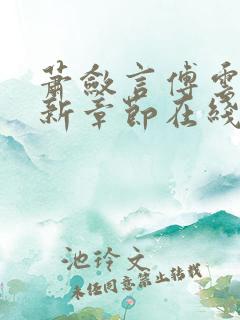 萧敛言傅雲
新章節在綫
池玲文
未经同意禁止转载